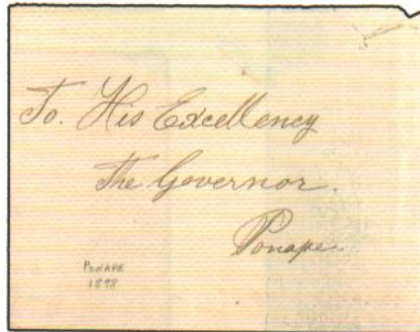 To. His Excellency
The Governor.
Ponape.
PONAPE
1898